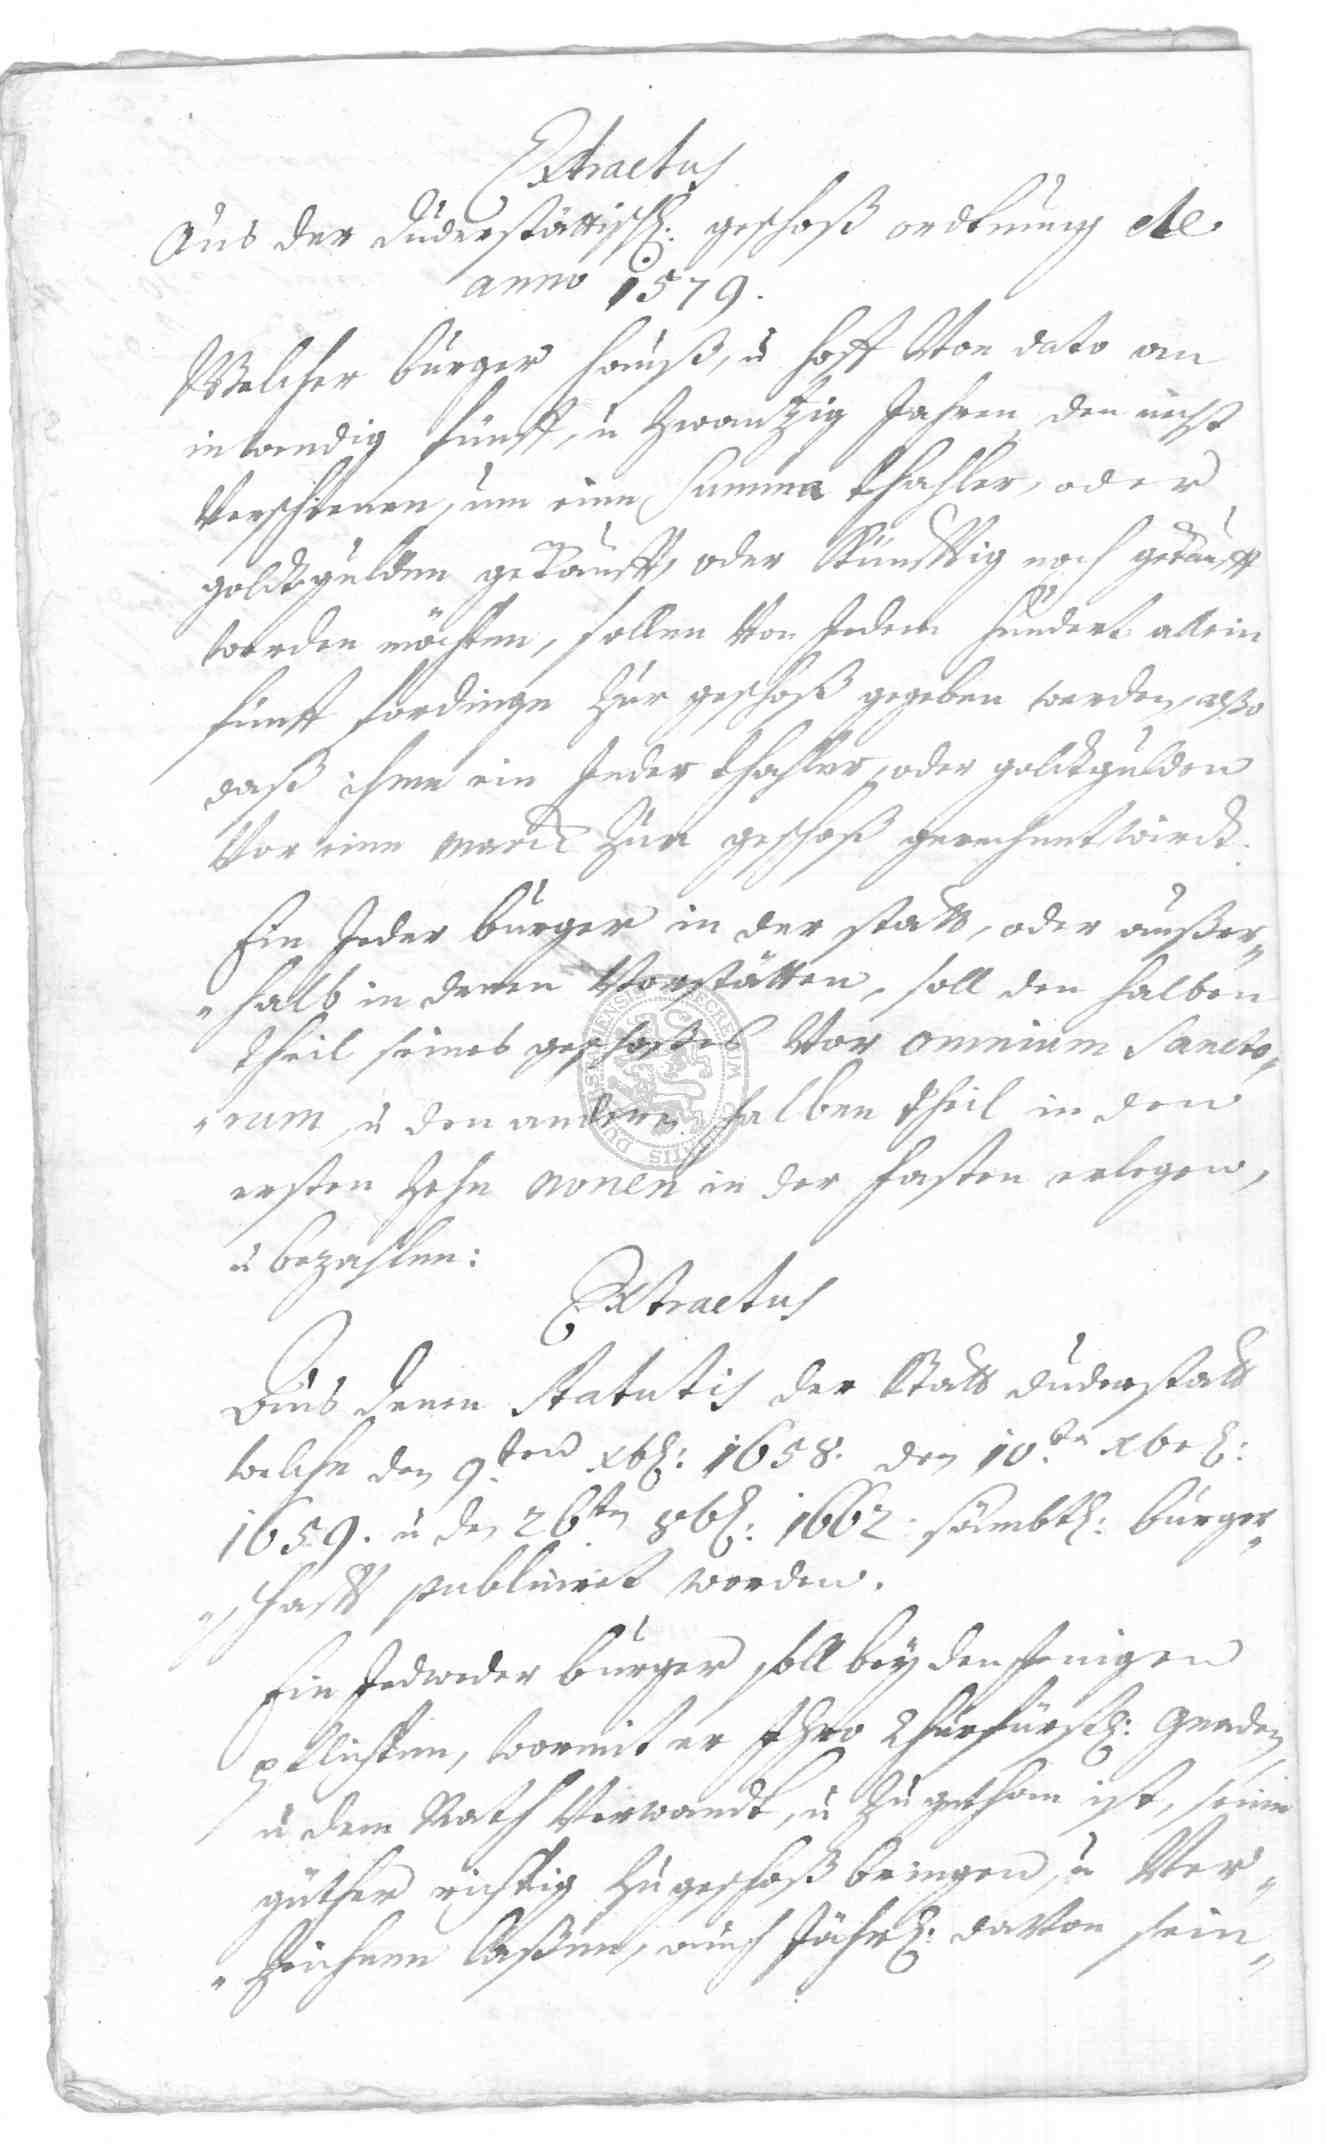 Extractus
Aus der duderstättisch: geschoß ordtnung etc.
anno 1579.
Welcher bürger hauß, u hoff Von dato an
inwendig fünff, u zwantzig Jahren den nechst
Verschienen, um eine Summa thahler, oder
goldtgulden gekaufft, oder künfftig noch gekaufft
werden möchten, sollen Von Jedem hundert allein
fünff fordinge zur geschoß gegeben werden, alßo
daß ihme ein Jeder thahler, oder goldtgulden
Vor eine marck zur geschoß gerechnet wirdt.
Ein Jeder bürger in der statt, oder außer„
„halb in denen Vorstätten, soll den halben
theil seines geschoßes Vor omnium Sancto„
„rum, u den andern halben theil in den
ersten zehn nonen in der fasten erlegen,
u bezahlen:
Extractus
Aus denen Statutis der Statt duderstatt
welche den 9ten xb: 1658. den 10ten xbr:
1659. u den 26ten 8b: 1662. sämbtl: bürger„
„schafft publiciret worden.
Ein Jedweder bürger soll bey denjenigen
pflichten, wormit er Ihro Churfürstl: Gnaden
u dem Rath Verwandt, u zugethan ist, seine
güther richtig zu geschoß bringen, u Ver„
„zeichnen laßen, auch Jährl: davon sein„